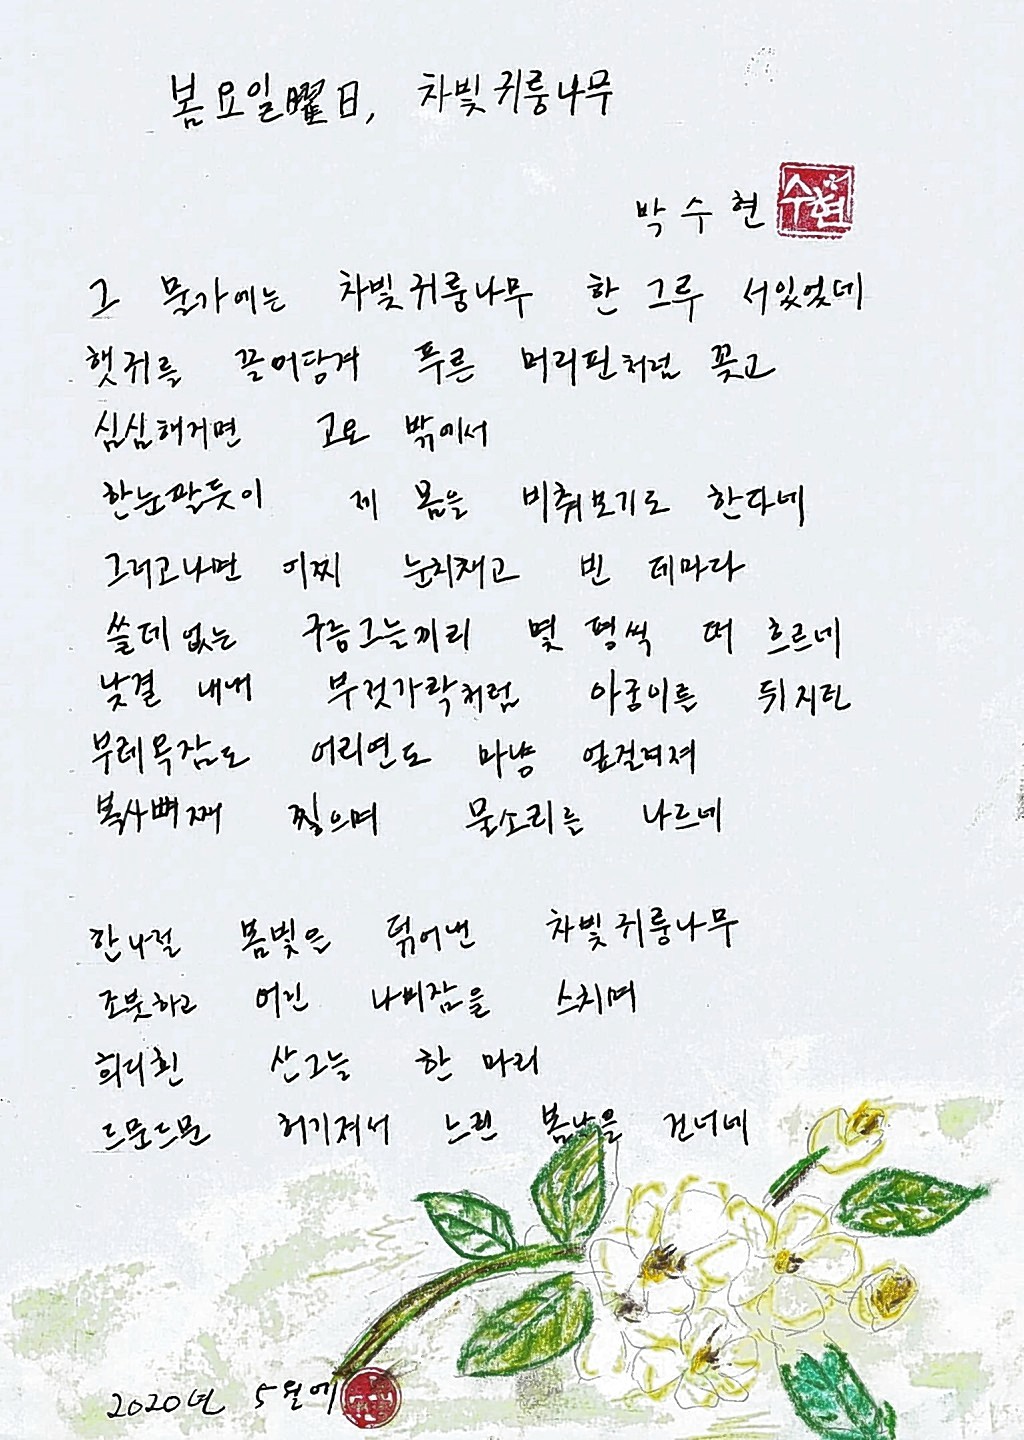 봄요일曜日, 차빛귀룽나무
박수현 수현
그 물가에는 차빛귀룽나무 한 그루 서있었데
햇귀를 끌어당겨 푸른 머리핀처럼 꽂고
심심해지면 고요 밖에서
한눈팔듯이 제 몸을 비춰보기도 한다네
그러고나면 어찌 눈치채고 빈 데마다
쓸데없는 구름그늘끼리 몇 평씩 떠 흐르네
낮결 내내 부젓가락처럼 아궁이를 뒤지던
부레옥잠도 어리연도 마냥 엎질러져
복사뼈째 찧으며 물소리를 나르네
한나절 봄빛을 덖어낸 차빛귀룽나무
조붓하고 어린 나비잠을 스치며
희디흰 산그늘 한 마리
드문드문 허기져서 느린 봄날을 건너네
2020년 5월에